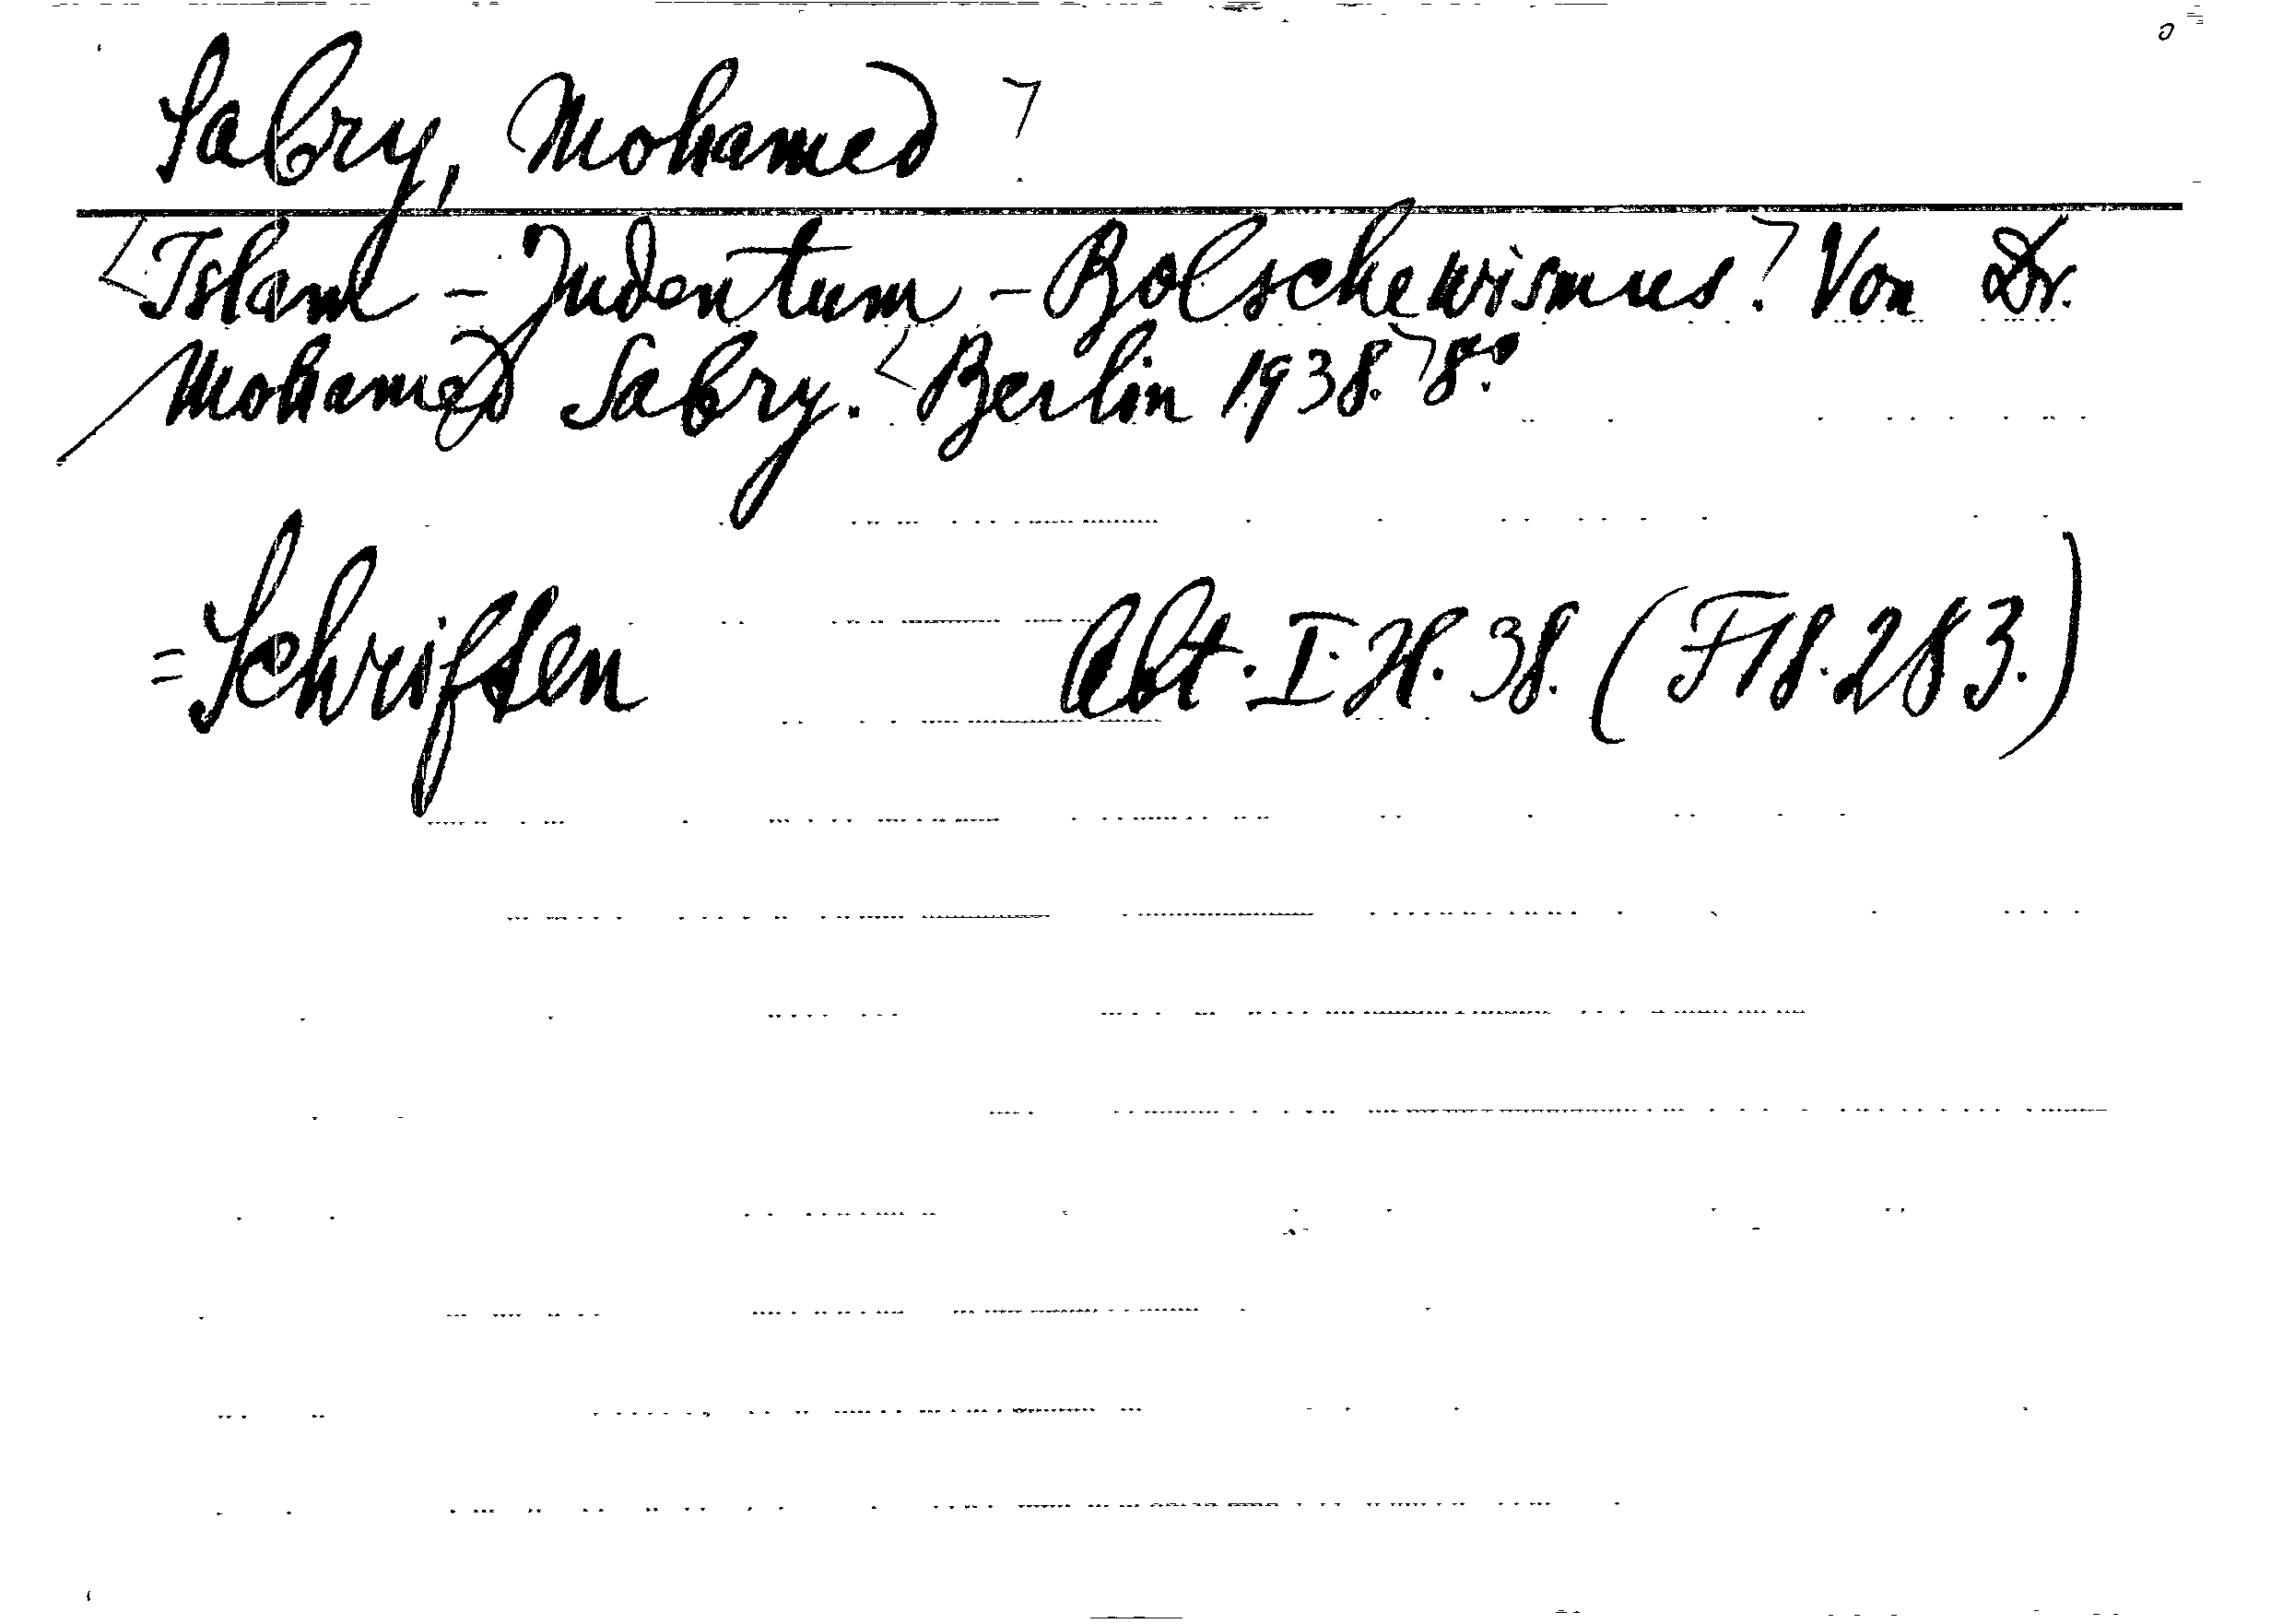 Sabry, Mohamed
Islam - Judentum - Bolschewismus. Von Dr.
Mohamed Sabry. Berlin 1938. 8°
= Schriften Abt. I. H. 38. (F18.283.)